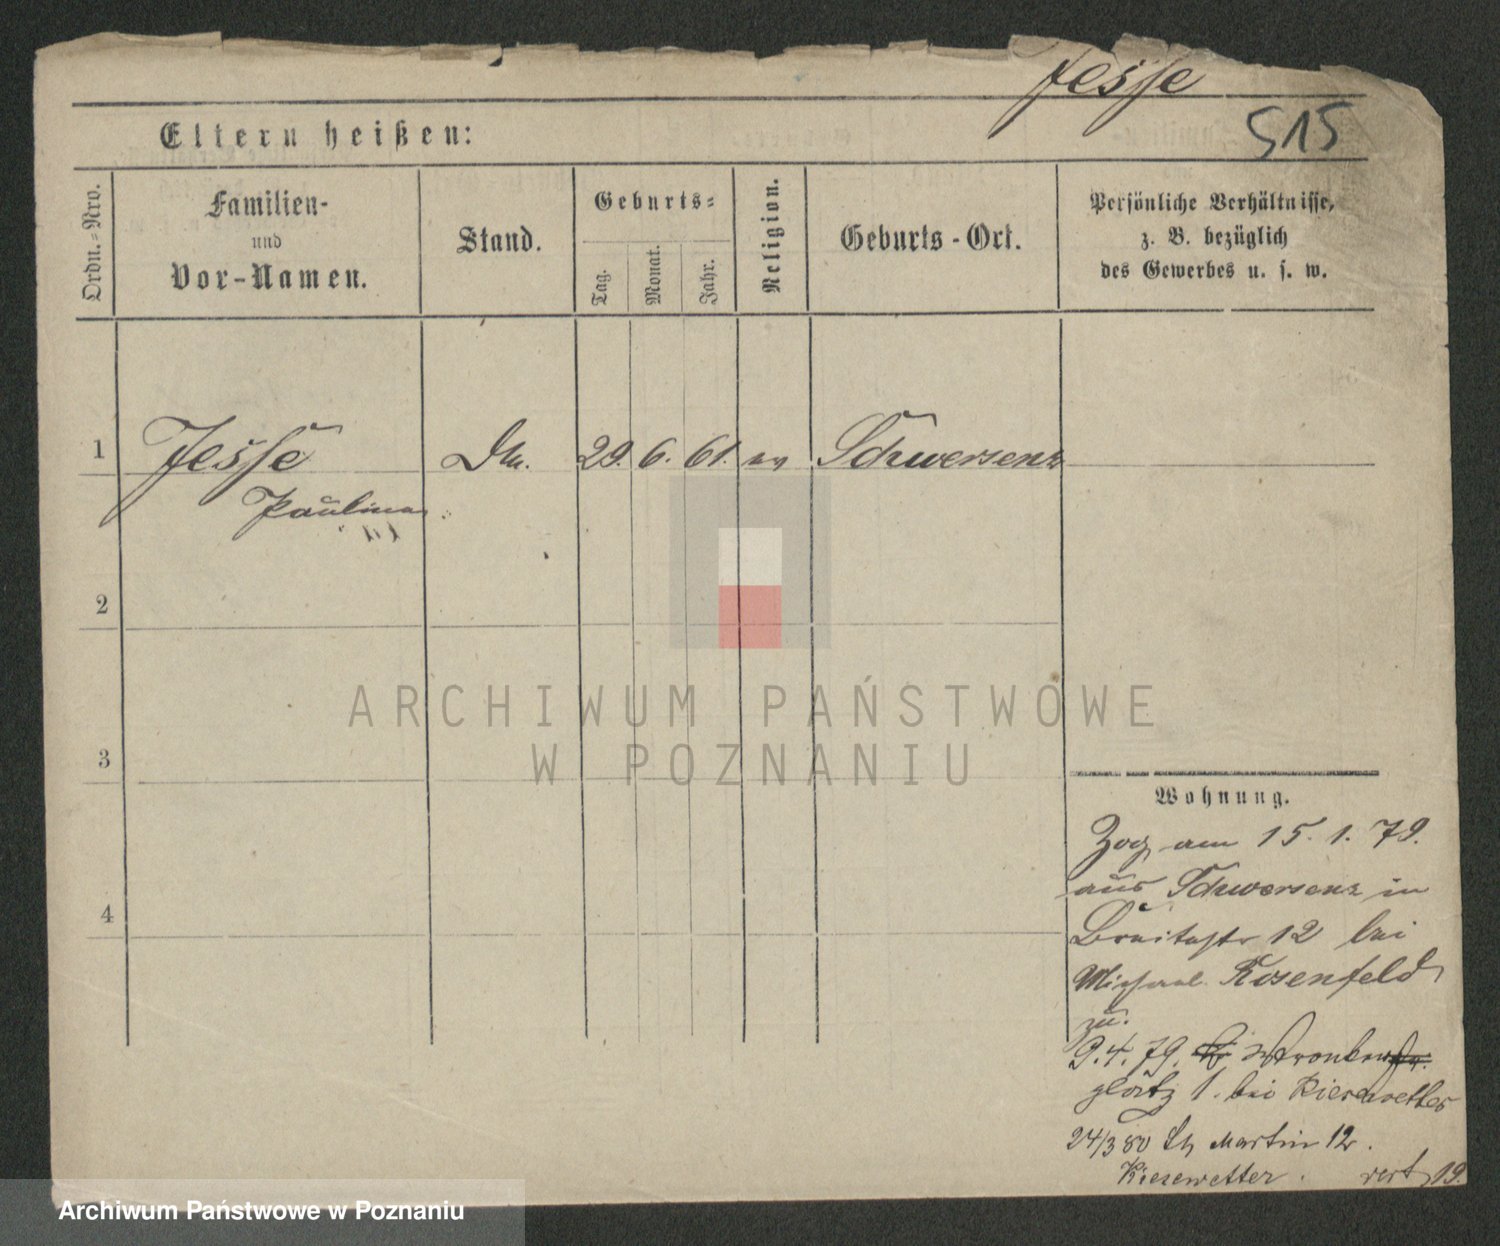 Jesse
515
Eltern heißen:
Ordn.-Nro.
Familien-
und
Vor-Namen.
Stand.
Geburts-
Tag.
Monat.
Jahr.
Religion.
Geburts-Ort.
Persönliche Verhältnisse,
z. B. bezüglich
des Gewerbes u. s. w.
1 Jesse 29. 6. 61. ev Schwersenz
Paulina
2
3
4
ARCHIWUM PAŃSTWOWE
W POZNANIU
Wohnung.
Zog am 15. 1. 79.
aus Schwersenz in
Breitestr 12 bei
Michael Rosenfeld
zu.
9. 4. 79. Wronker
platz 1. bei Kiesewetter
24/3 80 St Martin 12.
Kiesewetter.
Archiwum Państwowe w Poznaniu